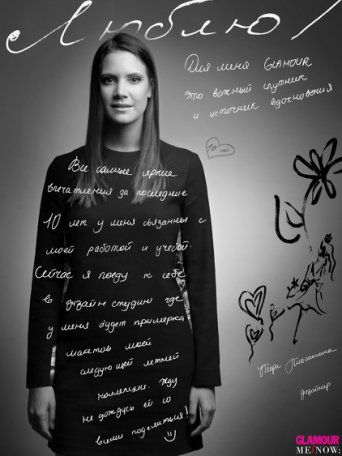 Люблю!
Для меня GLAMOUR
это важный спутник
и источник вдохновения
Все самые яркие
впечатления за последние
10 лет у меня связаны с
моей работой и учебой.
Сейчас я поеду к себе
в дизайн студию где
у меня будет примерка
макетов моей
следующей летней
коллекции. Жду
не дождусь ей со
всеми поделиться!
дизайнер
GLAMOUR
ME/NOW: